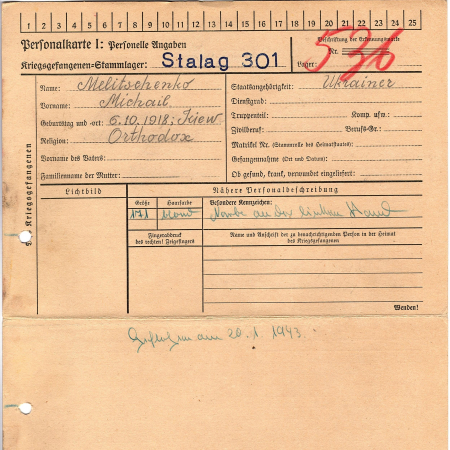 1 2 3 4 5 6 7 8 9 10 11 12 13 14 15 16 17 18 19 20 21 22 23 24 25
Personalkarte I: Personelle Angaben
Kriegsgefangenen-Stammlager: Stalag 301
Beschriftung der Erkennungsmarke
Nr. 536
Lager:
Des Kriegsgefangenen
Name: Melitschenko
Vorname: Michail
Geburtstag und -ort: 6.10.1918, Kiew
Religion: Orthodox
Vorname des Vaters:
Familienname der Mutter:
Staatsangehörigkeit: Ukrainer
Dienstgrad:
Truppenteil: Komp. usw.:
Zivilberuf: Berufs-Gr.:
Matrikel Nr. (Stammrolle des Heimatstaates):
Gefangennahme (Ort und Datum):
Ob gesund, krank, verwundet eingeliefert:
Lichtbild
Nähere Personalbeschreibung
Größe Haarfarbe Besondere Kennzeichen:
171 blond Narbe an der linken Hand
Fingerabdruck
des rechten! Zeigefingers
Name und Anschrift der zu benachrichtigenden Person in der Heimat
des Kriegsgefangenen
Wenden!
Geflohen am 20.1 1943.